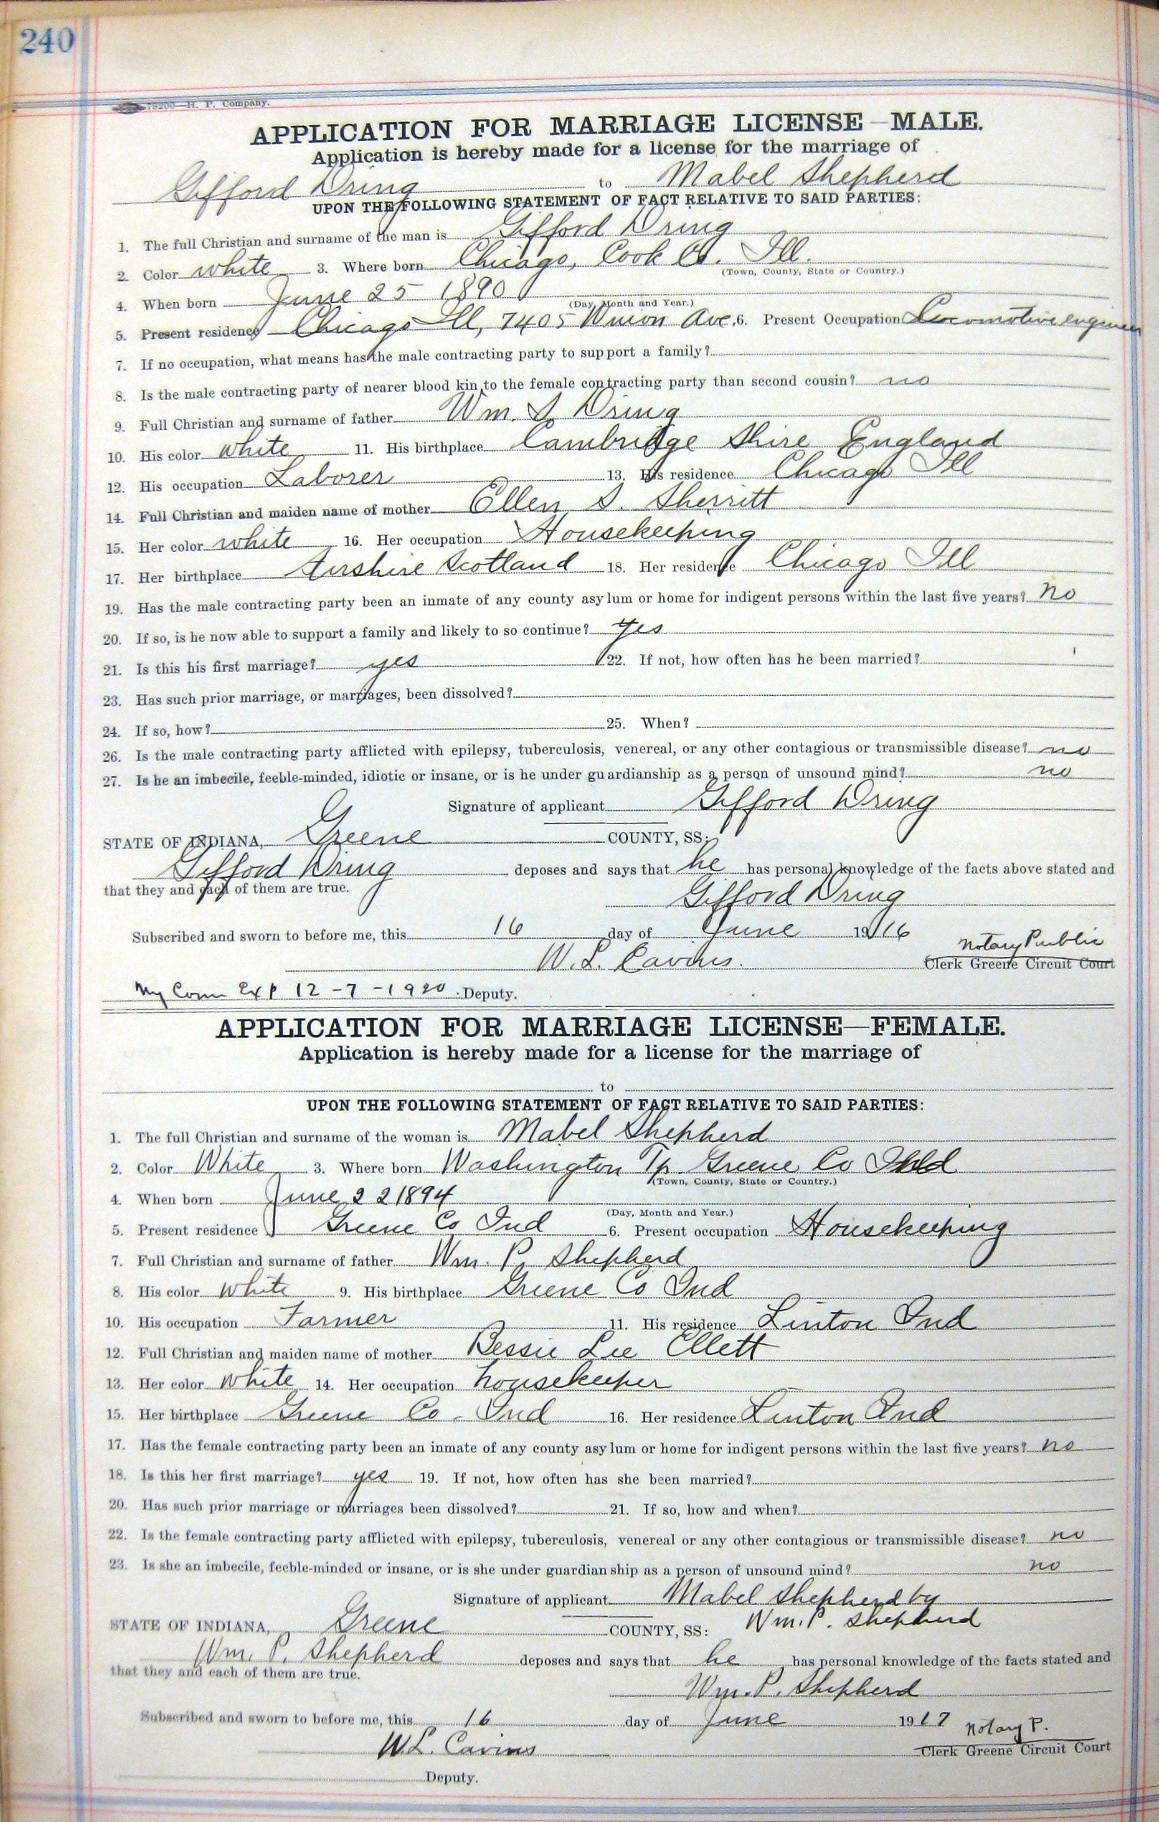 240
79200—H. P. Company.
APPLICATION FOR MARRIAGE LICENSE—MALE.
Application is hereby made for a license for the marriage of
Gifford Dring to Mabel Shepherd
UPON THE FOLLOWING STATEMENT OF FACT RELATIVE TO SAID PARTIES:
1. The full Christian and surname of the man is Gifford Dring
2. Color white 3. Where born Chicago, Cook Co. Ill.
(Town, County, State or Country.)
4. When born June 25 1890
(Day, Month and Year.)
5. Present residence Chicago Ill, 7405 Union Ave. 6. Present Occupation Locomotive engineer
7. If no occupation, what means has the male contracting party to support a family?
8. Is the male contracting party of nearer blood kin to the female contracting party than second cousin? no
9. Full Christian and surname of father Wm. S. Dring
10. His color white 11. His birthplace Cambridge Shire England
12. His occupation Laborer 13. His residence Chicago Ill
14. Full Christian and maiden name of mother Ellen S. Sherritt
15. Her color white 16. Her occupation Housekeeping
17. Her birthplace Airshire Scotland 18. Her residence Chicago Ill
19. Has the male contracting party been an inmate of any county asylum or home for indigent persons within the last five years? no
20. If so, is he now able to support a family and likely to so continue? yes
21. Is this his first marriage? yes 22. If not, how often has he been married?
23. Has such prior marriage, or marriages, been dissolved?
24. If so, how? 25. When?
26. Is the male contracting party afflicted with epilepsy, tuberculosis, venereal, or any other contagious or transmissible disease? no
27. Is he an imbecile, feeble-minded, idiotic or insane, or is he under guardianship as a person of unsound mind? no
Signature of applicant Gifford Dring
STATE OF INDIANA, Greene COUNTY, SS:
Gifford Dring deposes and says that he has personal knowledge of the facts above stated and
that they and each of them are true.
Gifford Dring
Subscribed and sworn to before me, this 16 day of June 1916
W. L. Cavins. Notary Public
Clerk Greene Circuit Court
My Com Exp 12-7-1920 Deputy.
APPLICATION FOR MARRIAGE LICENSE—FEMALE.
Application is hereby made for a license for the marriage of
to
UPON THE FOLLOWING STATEMENT OF FACT RELATIVE TO SAID PARTIES:
1. The full Christian and surname of the woman is Mabel Shepherd
2. Color White 3. Where born Washington Tp Greene Co Ind
(Town, County, State or Country.)
4. When born June 22 1894
(Day, Month and Year.)
5. Present residence Greene Co Ind 6. Present occupation Housekeeping
7. Full Christian and surname of father Wm. P. Shepherd
8. His color white 9. His birthplace Greene Co Ind
10. His occupation Farmer 11. His residence Linton Ind
12. Full Christian and maiden name of mother Bessie Lee Ellett
13. Her color white 14. Her occupation housekeeper
15. Her birthplace Greene Co. Ind 16. Her residence Linton Ind
17. Has the female contracting party been an inmate of any county asylum or home for indigent persons within the last five years? no
18. Is this her first marriage? yes 19. If not, how often has she been married?
20. Has such prior marriage or marriages been dissolved? 21. If so, how and when?
22. Is the female contracting party afflicted with epilepsy, tuberculosis, venereal or any other contagious or transmissible disease? no
23. Is she an imbecile, feeble-minded or insane, or is she under guardianship as a person of unsound mind? no
Signature of applicant Mabel Shepherd by
Wm. P. Shepherd
STATE OF INDIANA, Greene COUNTY, SS:
Wm. P. Shepherd deposes and says that he has personal knowledge of the facts stated and
that they and each of them are true.
Wm. P. Shepherd
Subscribed and sworn to before me, this 16 day of June 1917
W. L. Cavins Notary P.
Clerk Greene Circuit Court
Deputy.